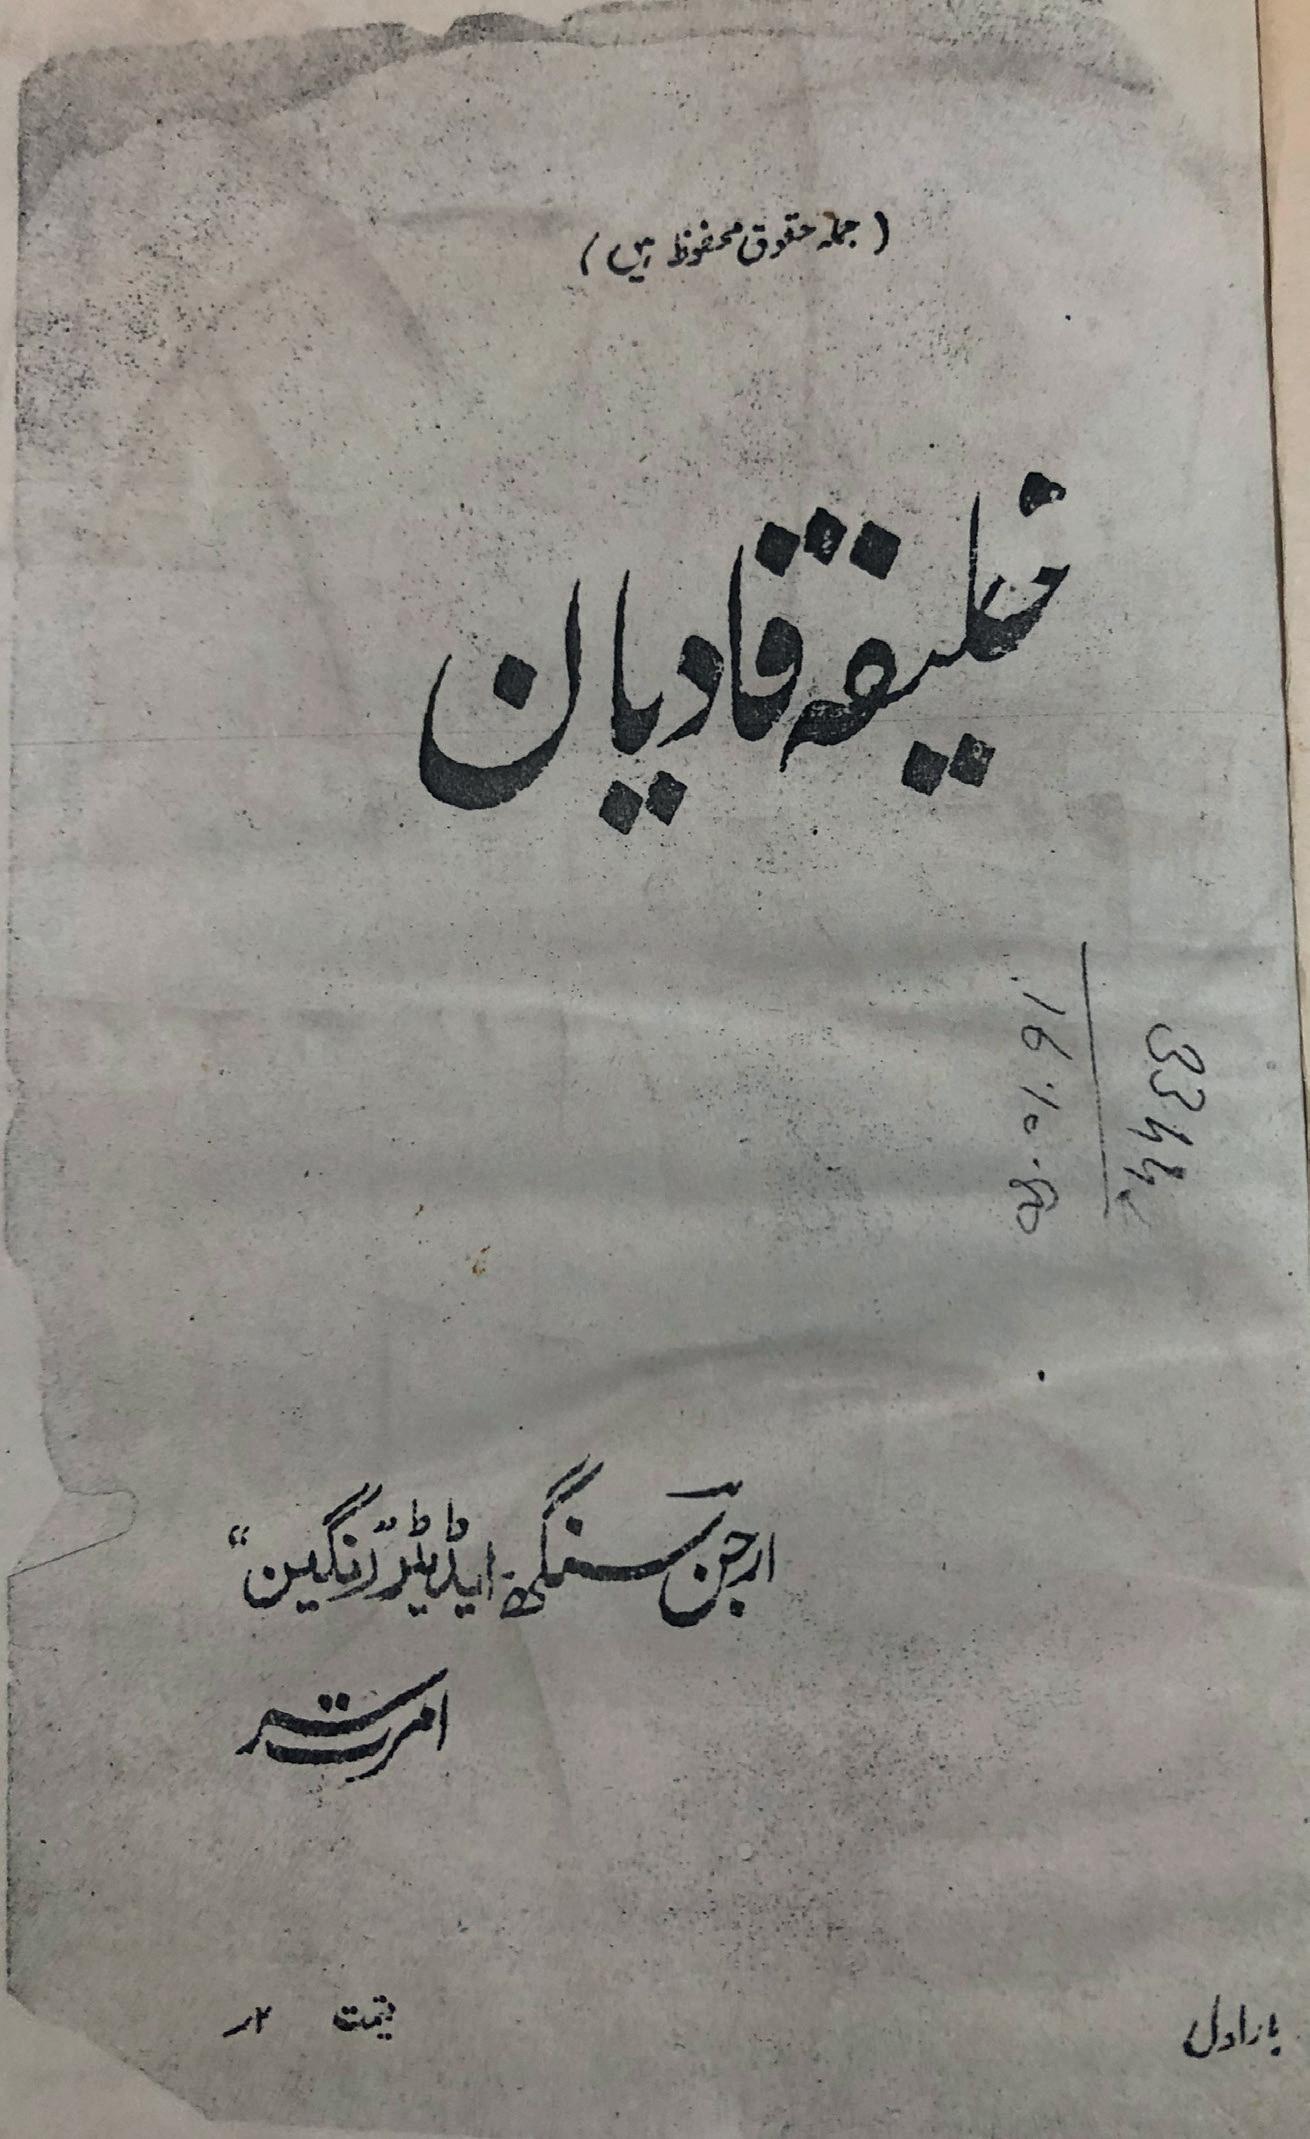 (جملہ حقوق محفوظ ہیں)
خلیفہ قادیان
3344
16.10.80
ارجن سنگھ ایڈیٹر "رنگین"
امرتسر
بار اول
قیمت ۲ر